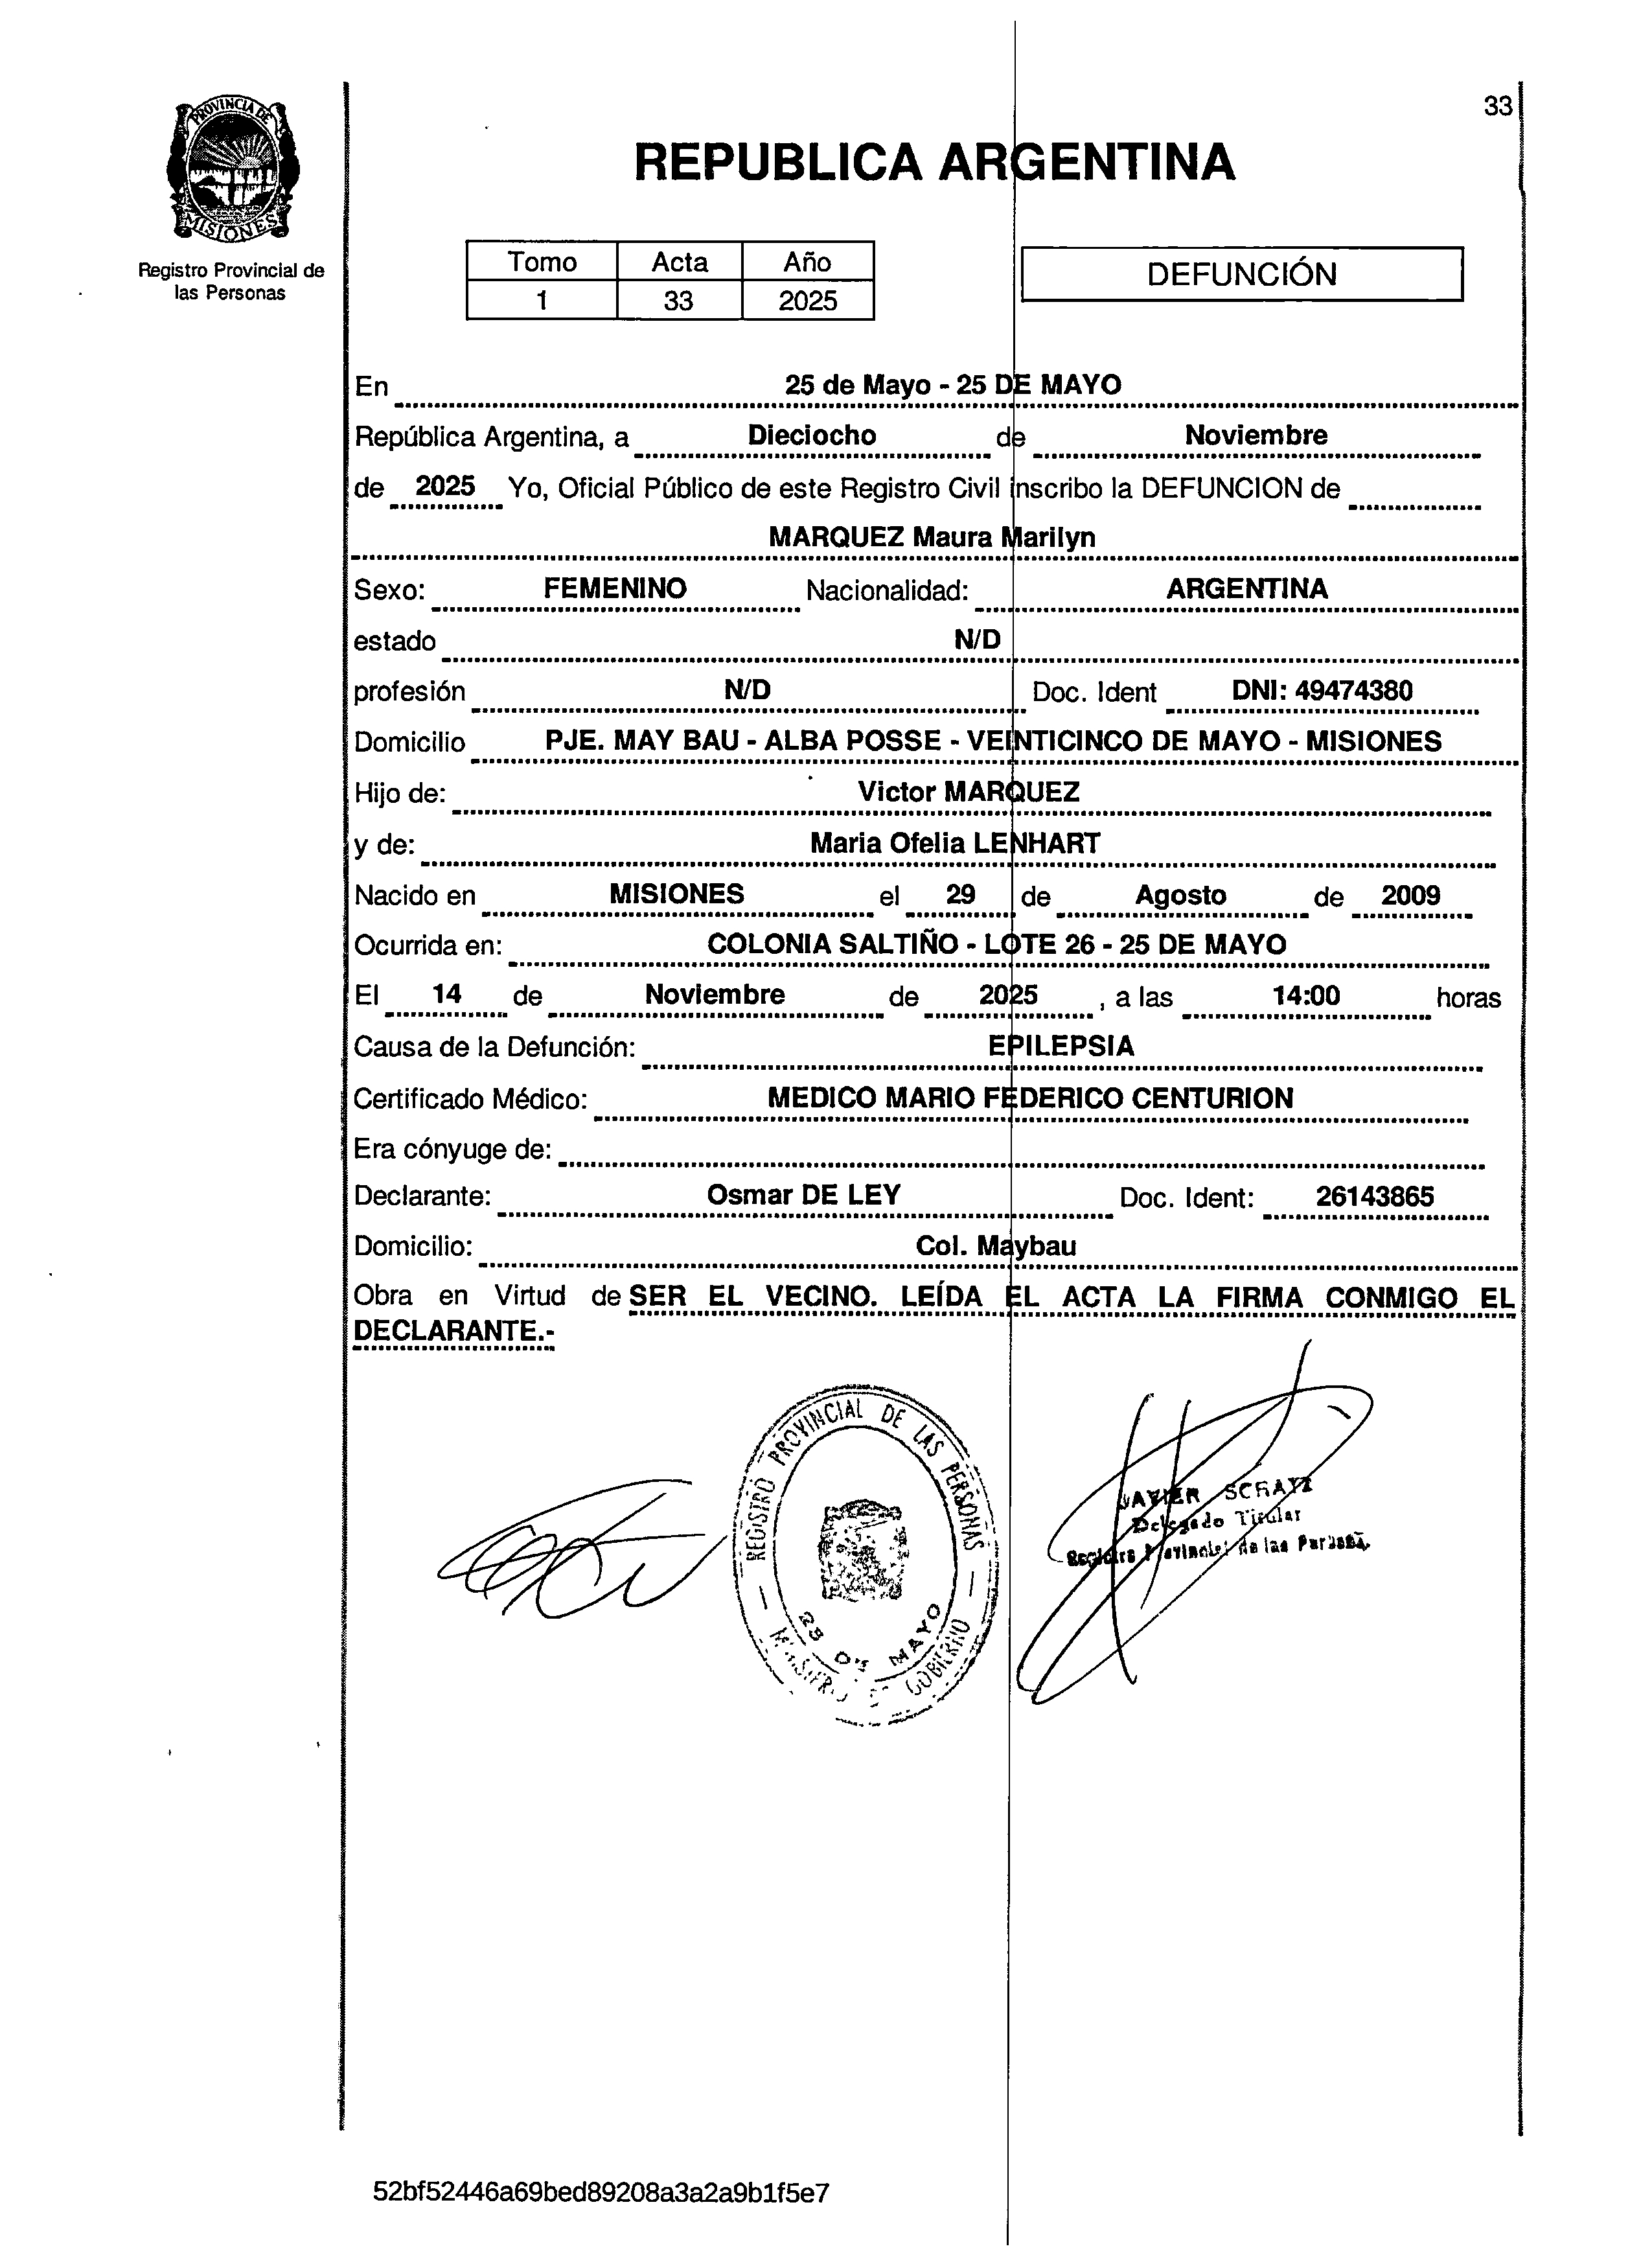 33
PROVINCIA DE
MISIONES
Registro Provincial de
las Personas
REPUBLICA ARGENTINA
Tomo Acta Año
1 33 2025
DEFUNCIÓN
En 25 de Mayo - 25 DE MAYO
República Argentina, a Dieciocho de Noviembre
de 2025 Yo, Oficial Público de este Registro Civil inscribo la DEFUNCION de
MARQUEZ Maura Marilyn
Sexo: FEMENINO Nacionalidad: ARGENTINA
estado N/D
profesión N/D Doc. Ident DNI: 49474380
Domicilio PJE. MAY BAU - ALBA POSSE - VEINTICINCO DE MAYO - MISIONES
Hijo de: Victor MARQUEZ
y de: Maria Ofelia LENHART
Nacido en MISIONES el 29 de Agosto de 2009
Ocurrida en: COLONIA SALTIÑO - LOTE 26 - 25 DE MAYO
El 14 de Noviembre de 2025 , a las 14:00 horas
Causa de la Defunción: EPILEPSIA
Certificado Médico: MEDICO MARIO FEDERICO CENTURION
Era cónyuge de:
Declarante: Osmar DE LEY Doc. Ident: 26143865
Domicilio: Col. Maybau
Obra en Virtud de SER EL VECINO. LEÍDA EL ACTA LA FIRMA CONMIGO EL
DECLARANTE.-
REGISTRO PROVINCIAL DE LAS PERSONAS
25 DE MAYO
GOBIERNO
JAVIER
Delegado Titular
de las
52bf52446a69bed89208a3a2a9b1f5e7